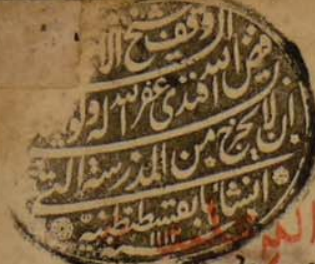 وقف شيخ
فيض الله افندى غفر الله له
ان لا يخرج من المدرسة التى
انشأها بقسطنطنيه
١١١٢